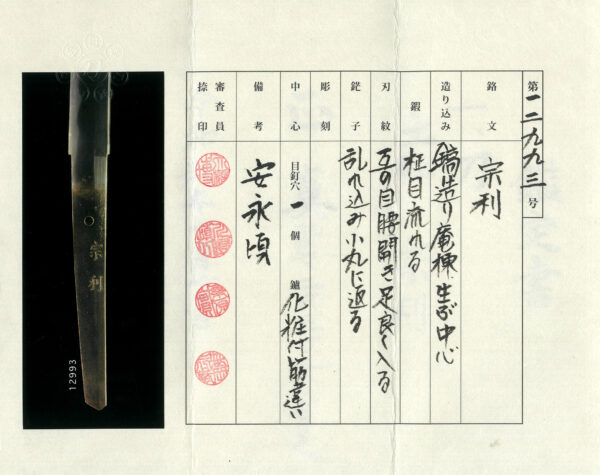 第一二九九三号
銘文 宗利
造り込み 鎬造り庵棟生ぶ中心
鍛 柾目流れる
刃紋 互の目腰開き足良く入る
鋩子 乱れ込み小丸に返る
彫刻
中心 目釘穴 一個 鑢 化粧付筋違い
備考 安永頃
審査員捺印
宗利
12993